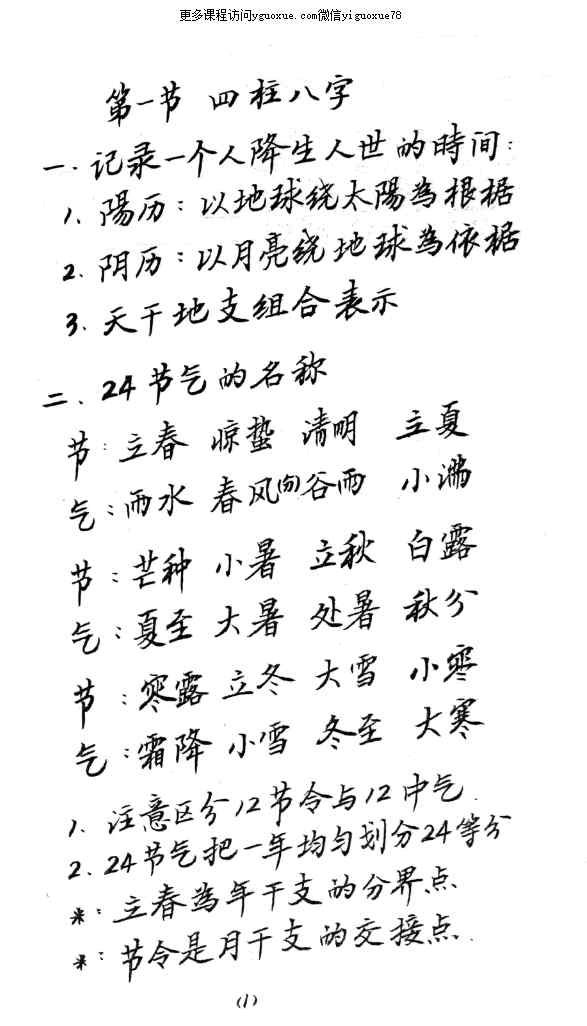 更多课程访问yguoxue.com微信yiguoxue78
第一节 四柱八字
一. 记录一个人降生人世的時间:
1. 陽历: 以地球绕太陽為根据
2. 阴历: 以月亮绕地球為依据
3. 天干地支组合表示
二. 24节气的名称
节: 立春 惊蛰 清明 立夏
气: 雨水 春风(分)谷雨 小满
节: 芒种 小暑 立秋 白露
气: 夏至 大暑 处暑 秋分
节: 寒露 立冬 大雪 小寒
气: 霜降 小雪 冬至 大寒
1. 注意区分12节令与12中气.
2. 24节气把一年均匀划分24等分
*: 立春為年干支的分界点
*: 节令是月干支的交接点.
(1)